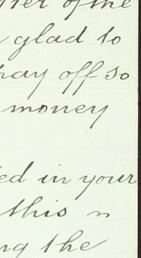 of the
glad to
pay off so
money
ed in your
this
ng the